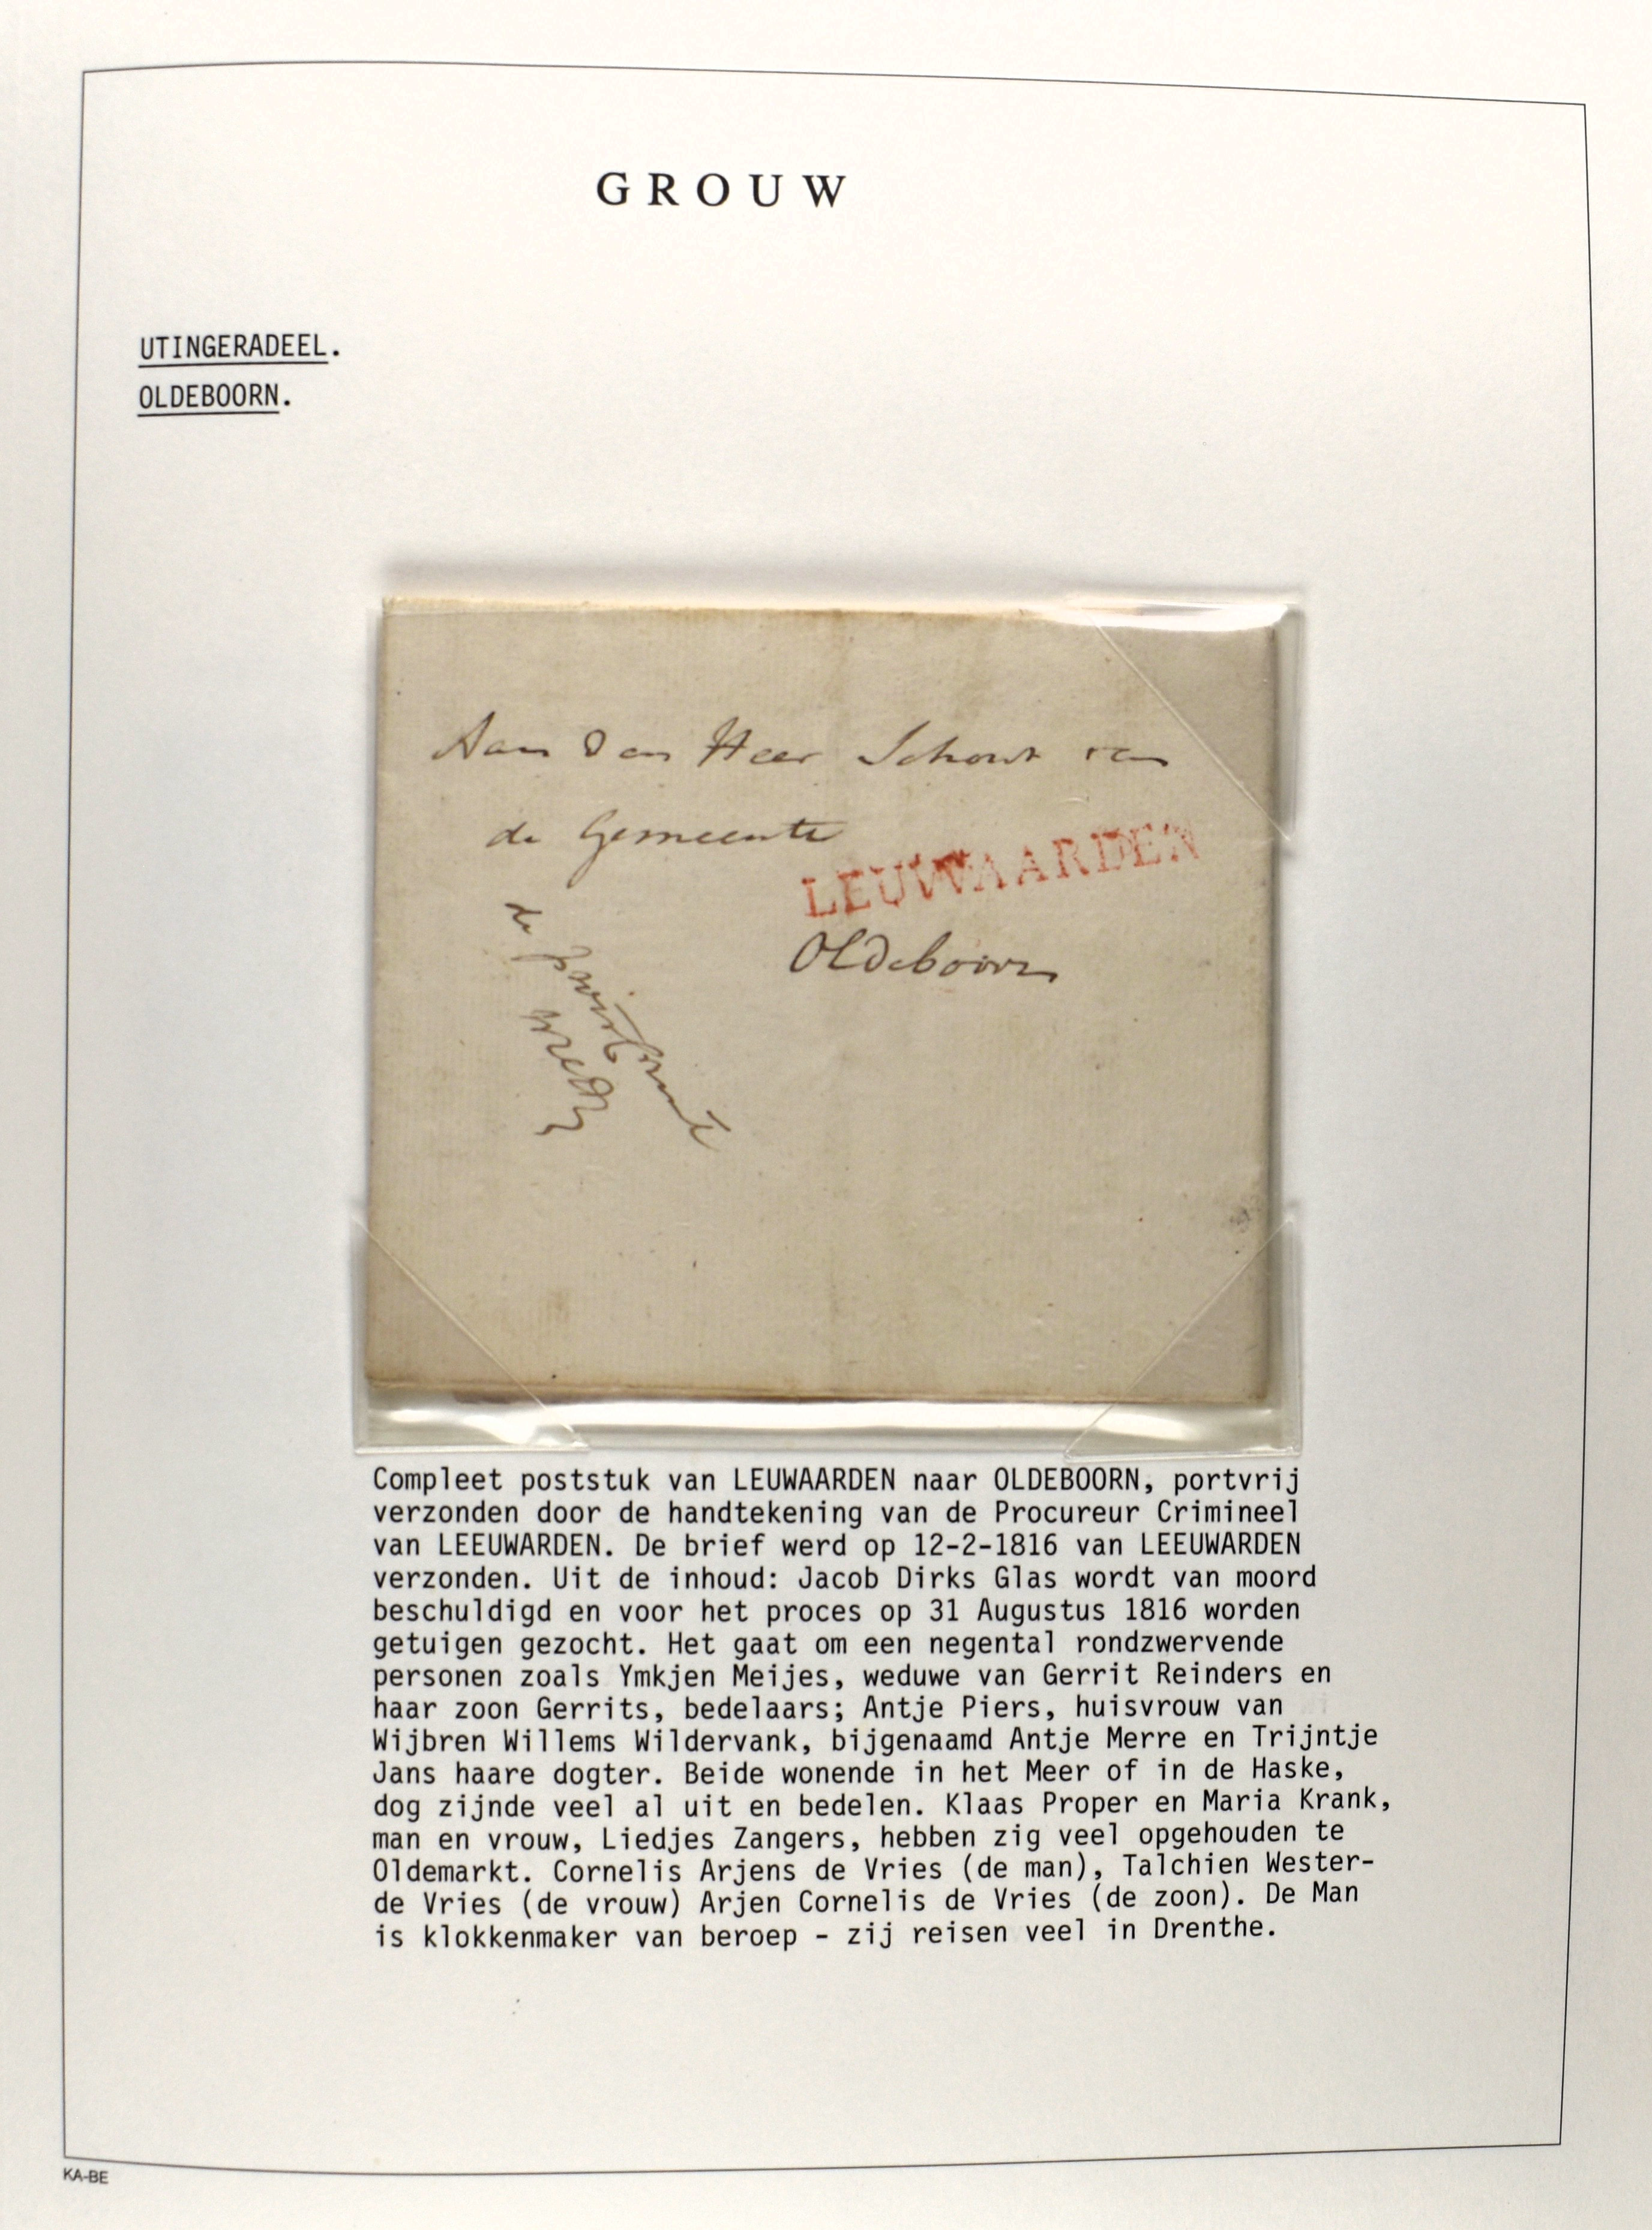 GROUW
UTINGERADEEL.
OLDEBOORN.
Aan Den Heer Schout van
de Gemeente
LEUWAARDEN
Oldeboorn
Compleet poststuk van LEUWAARDEN naar OLDEBOORN, portvrij
verzonden door de handtekening van de Procureur Crimineel
van LEEUWARDEN. De brief werd op 12-2-1816 van LEEUWARDEN
verzonden. Uit de inhoud: Jacob Dirks Glas wordt van moord
beschuldigd en voor het proces op 31 Augustus 1816 worden
getuigen gezocht. Het gaat om een negental rondzwervende
personen zoals Ymkjen Meijes, weduwe van Gerrit Reinders en
haar zoon Gerrits, bedelaars; Antje Piers, huisvrouw van
Wijbren Willems Wildervank, bijgenaamd Antje Merre en Trijntje
Jans haare dogter. Beide wonende in het Meer of in de Haske,
dog zijnde veel al uit en bedelen. Klaas Proper en Maria Krank,
man en vrouw, Liedjes Zangers, hebben zig veel opgehouden te
Oldemarkt. Cornelis Arjens de Vries (de man), Talchien Wester-
de Vries (de vrouw) Arjen Cornelis de Vries (de zoon). De Man
is klokkenmaker van beroep - zij reisen veel in Drenthe.
KA-BE